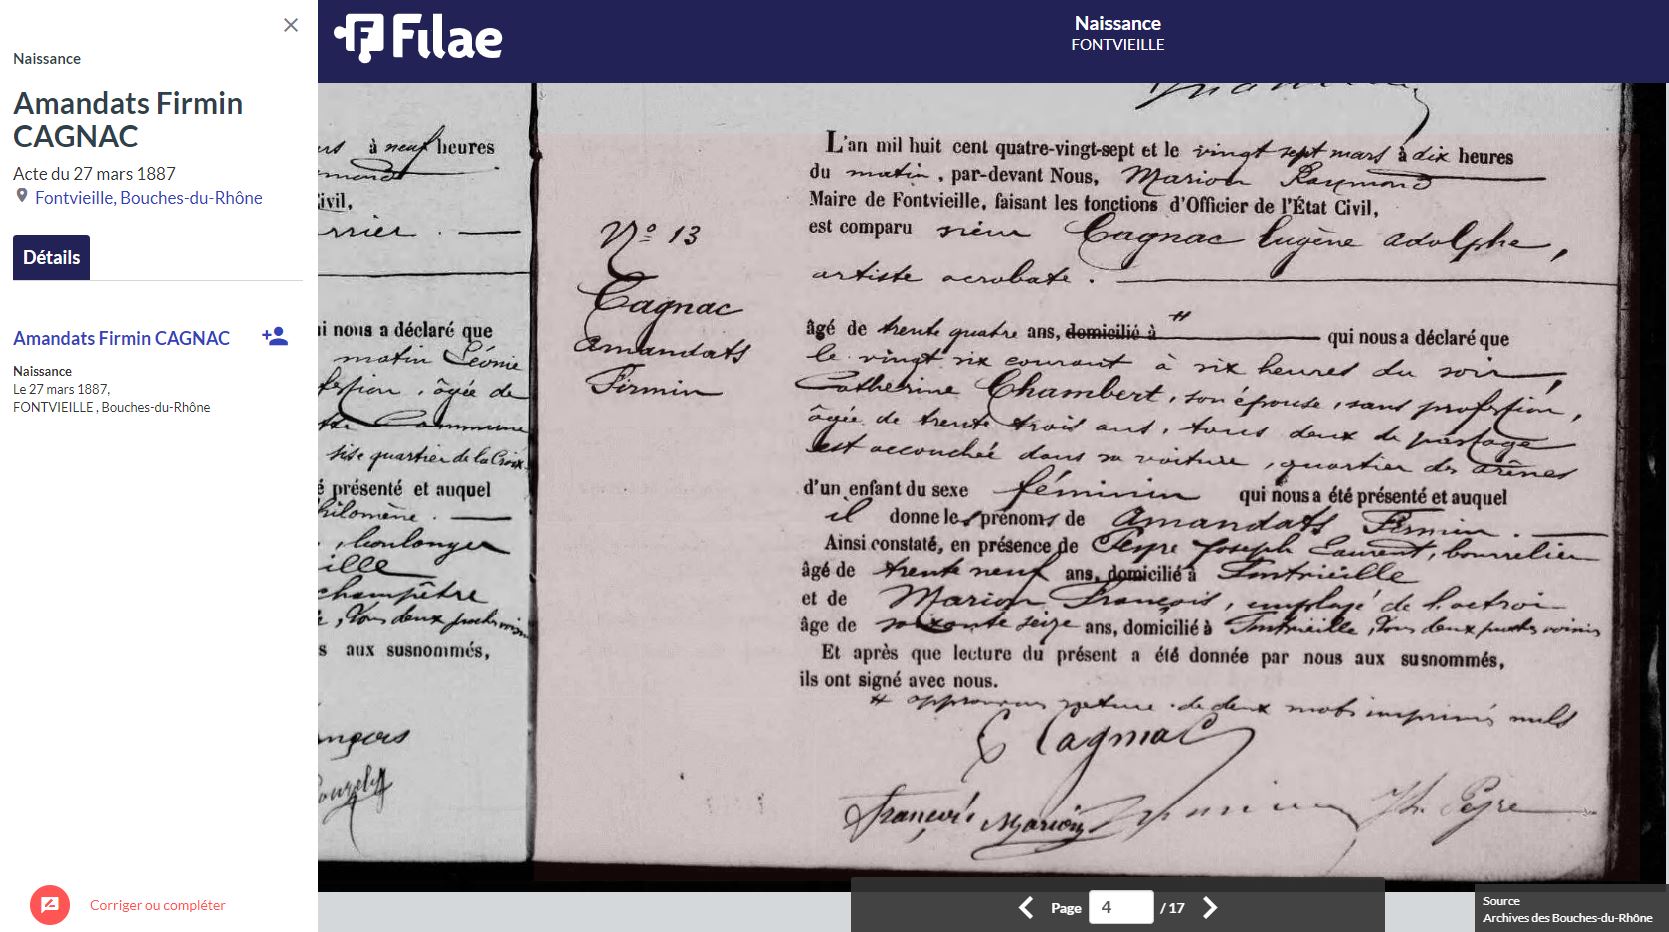 Naissance
Amandats Firmin
CAGNAC
Acte du 27 mars 1887
Fontvieille, Bouches-du-Rhône
Détails
Amandats Firmin CAGNAC
Naissance
Le 27 mars 1887,
FONTVIEILLE , Bouches-du-Rhône
Corriger ou compléter
Filae
Naissance
FONTVIEILLE
à neuf heures
ivil,
rrier .
i nous a déclaré que
matin Léonie
fession , âgée de
Commune
sise quartier de la Croix
é présenté et auquel
hilomène .
, boulanger
ille
champêtre
, tous deux proches voisins
s aux susnommés,
N° 13
Cagnac
Amandats
Firmin
L'an mil huit cent quatre-vingt-sept et le vingt sept mars à dix heures
du matin , par-devant Nous, Marion Raymond
Maire de Fontvieille, faisant les fonctions d'Officier de l'État Civil,
est comparu sieur Cagnac Eugène Adolphe,
artiste acrobate .
âgé de trente quatre ans, domicilié à # qui nous a déclaré que
le vingt six courant à six heures du soir,
Catherine Chambert, son épouse, sans profession,
âgée de trente trois ans, tous deux de passage
est accouchée dans sa voiture, quartier des arènes
d'un enfant du sexe féminin qui nous a été présenté et auquel
il donne les prénoms de Amandats Firmin .
Ainsi constaté, en présence de Peyre Joseph Laurent, bourrelier
âgé de trente neuf ans, domicilié à Fontvieille
et de Marion François, employé de l'octroi
âge de soixante seize ans, domicilié à Fontvieille, tous deux proches voisins
Et après que lecture du présent a été donnée par nous aux susnommés,
ils ont signé avec nous.
# approuvons rature de deux mots imprimés nuls
E Cagnac
François Marion
Peyre
Page 4 / 17
Source
Archives des Bouches-du-Rhône